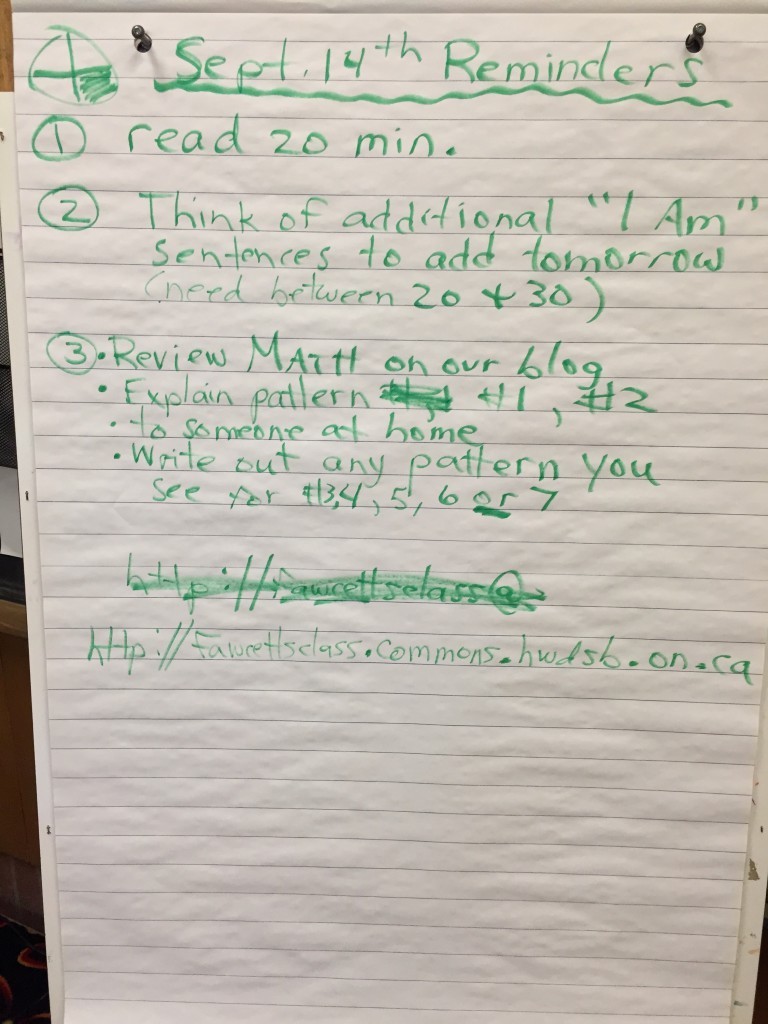 Sept. 14th Reminders
① read 20 min.
② Think of additional "I Am"
Sentences to add tomorrow
(need between 20 + 30)
③ • Review MATH on our blog
• Explain pattern #1, #2
• to someone at home
• Write out any pattern you
see for #3,4, 5, 6 or 7
http://fawcettsclass@
http://fawcettsclass.commons.hwdsb.on.ca